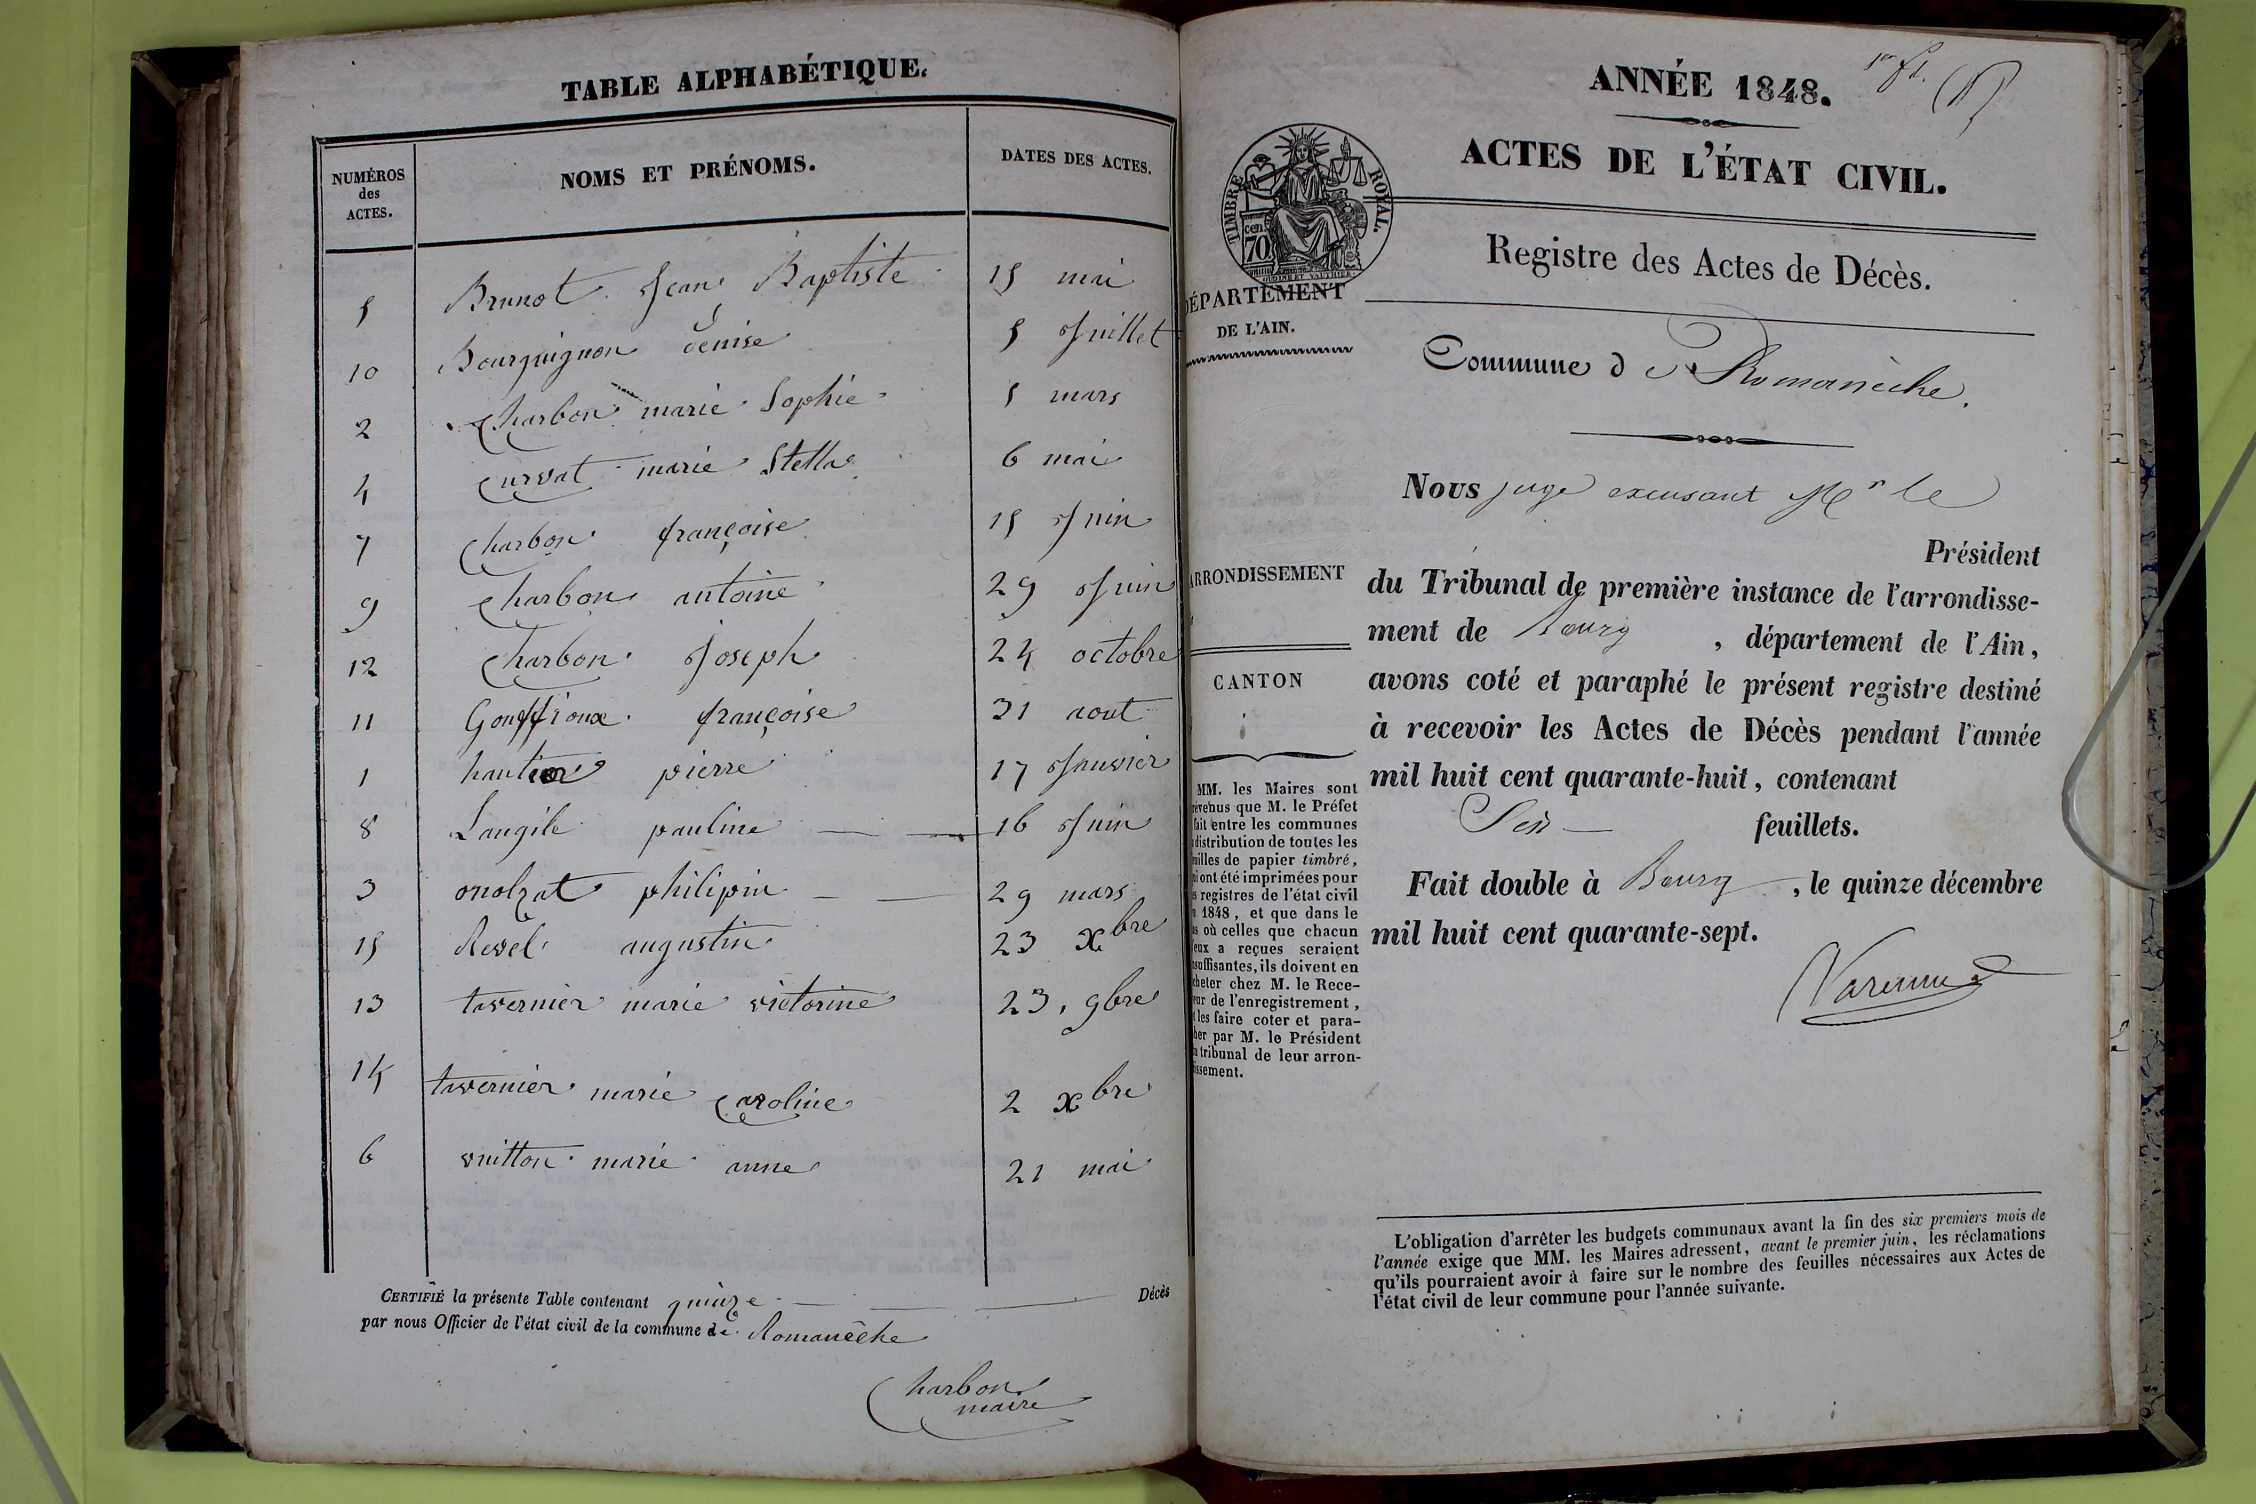 TABLE ALPHABÉTIQUE.
NUMÉROS des ACTES.
NOMS ET PRÉNOMS.
DATES DES ACTES.
5 Brunot Jean Baptiste 15 mai
10 Bourguignon denise 5 Juillet
2 Charbon marie Sophie 5 mars
4 Curvat marie Stella 6 mai
7 Charbon françoise 15 Juin
9 Charbon antoine 29 Juin
12 Charbon Joseph 24 octobre
11 Gouffioux françoise 31 aout
1 hautier pierre 17 Janvier
8 Laugile pauline 16 Juin
3 philipin 29 mars
15 Revel augustin 23 xbre
13 tavernier marie victorine 23, 9bre
14 tavernier marie Caroline 2 xbre
6 vuitton marie anne 21 mai
CERTIFIÉ la présente Table contenant quinze Décès
par nous Officier de l'état civil de la commune de Romanêche
Charbon
maire
ANNÉE 1848.
ACTES DE L'ÉTAT CIVIL.
TIMBRE ROYAL.
cen.
70
Registre des Actes de Décès.
DÉPARTEMENT
DE L'AIN.
Commune de Romanèche.
Nous juge excusant Mr le
Président
du Tribunal de première instance de l'arrondisse-
ment de Bourg, département de l'Ain,
avons coté et paraphé le présent registre destiné
à recevoir les Actes de Décès pendant l'année
mil huit cent quarante-huit, contenant
feuillets.
Fait double à Bourg, le quinze décembre
mil huit cent quarante-sept.
Varenne
ARRONDISSEMENT
CANTON
MM. les Maires sont
révenus que M. le Préfet
fait entre les communes
distribution de toutes les
uilles de papier timbré,
ui ont été imprimées pour
es registres de l'état civil
n 1848, et que dans le
as où celles que chacun
eux a reçues seraient
nsuffisantes, ils doivent en
cheter chez M. le Rece-
eur de l'enregistrement,
t les faire coter et para-
her par M. le Président
u tribunal de leur arron-
issement.
L'obligation d'arrêter les budgets communaux avant la fin des six premiers mois de
l'année exige que MM. les Maires adressent, avant le premier juin, les réclamations
qu'ils pourraient avoir à faire sur le nombre des feuilles nécessaires aux Actes de
l'état civil de leur commune pour l'année suivante.